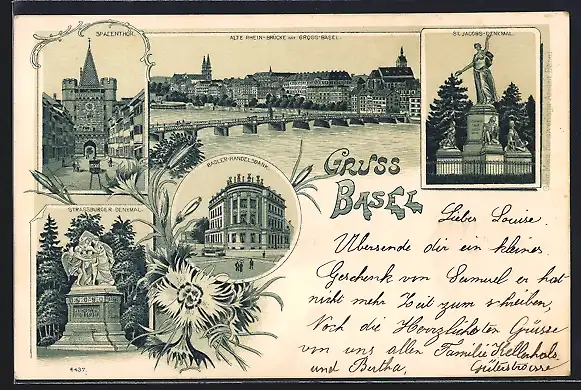 SPALENTHOR.
ALTE RHEIN-BRÜCKE MIT GROSS-BASEL.
ST. JACOBS-DENKMAL.
BASLER-HANDELSBANK.
GRUSS
BASEL
STRASSBURGER DENKMAL.
4437.
Lieber Louise.
Übersende dir ein kleines
Geschenk von Samuel er hat
nicht mehr Zeit zum schreiben,
Noch die Herzlichsten Grüsse
von uns allen Familie Kellerhals
und Bertha, Güterstrasse